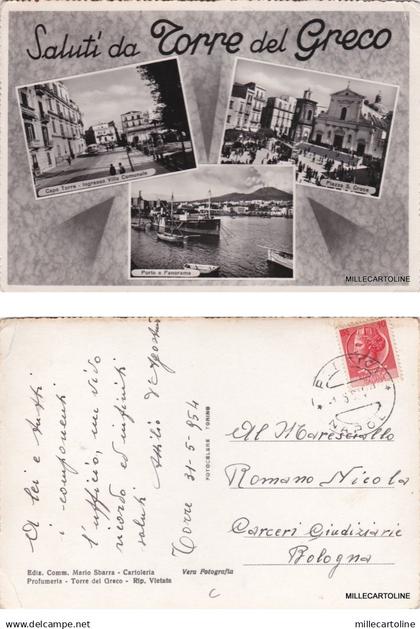 Saluti da Torre del Greco
Capo Torre - Ingresso Villa Comunale
Piazza S. Croce
Porto e Panorama
MILLECARTOLINE
A lei e tutti
i componenti
l'ufficio, un vivo
ricordo ed infiniti
saluti
Attilio D'Agostino
Torre 31-5-954
FOTOCELERE TORINO
NAPOLI
Al Maresciallo
Romano Nicola
Carceri Giudiziarie
Bologna
Ediz. Comm. Mario Sbarra - Cartoleria
Profumeria - Torre del Greco - Rip. Vietata
Vera Fotografia
C
MILLECARTOLINE
delcampe.net
millecartoline